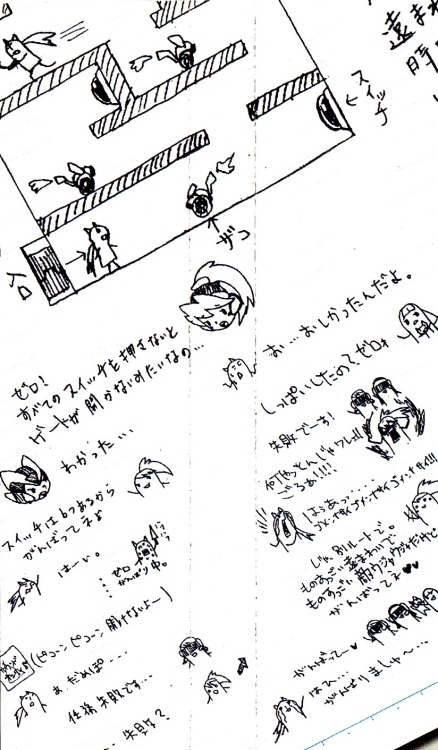 遠まわ
時
スイッチ
ザコ
ロイ
ゼロ!
すべてのスイッチを押さないと
ゲートが開かないみたいなの…
わかった…
スイッチは6つあるから
がんばってネ
はーい。
ゼロ
がんばり中。
(ピコーンピコーン開けないよー)
あ だめぽ…
任務失敗です…
… 失敗?
お…おしかったんだよ。
しっぱいしたの?ゼロォ
失敗でーす!
何やっとんじゃワレェ!!
ごるぁ!!!!
はうあっ……
ゴメンナサイゴメンナサイゴメンナサイ!!!
じゃ、別ルートで。
ものすっごい遠まわりで
ものすっごい
がんばってネ♥♥
がんばって~♥
はい…
がんばりましゅ~…